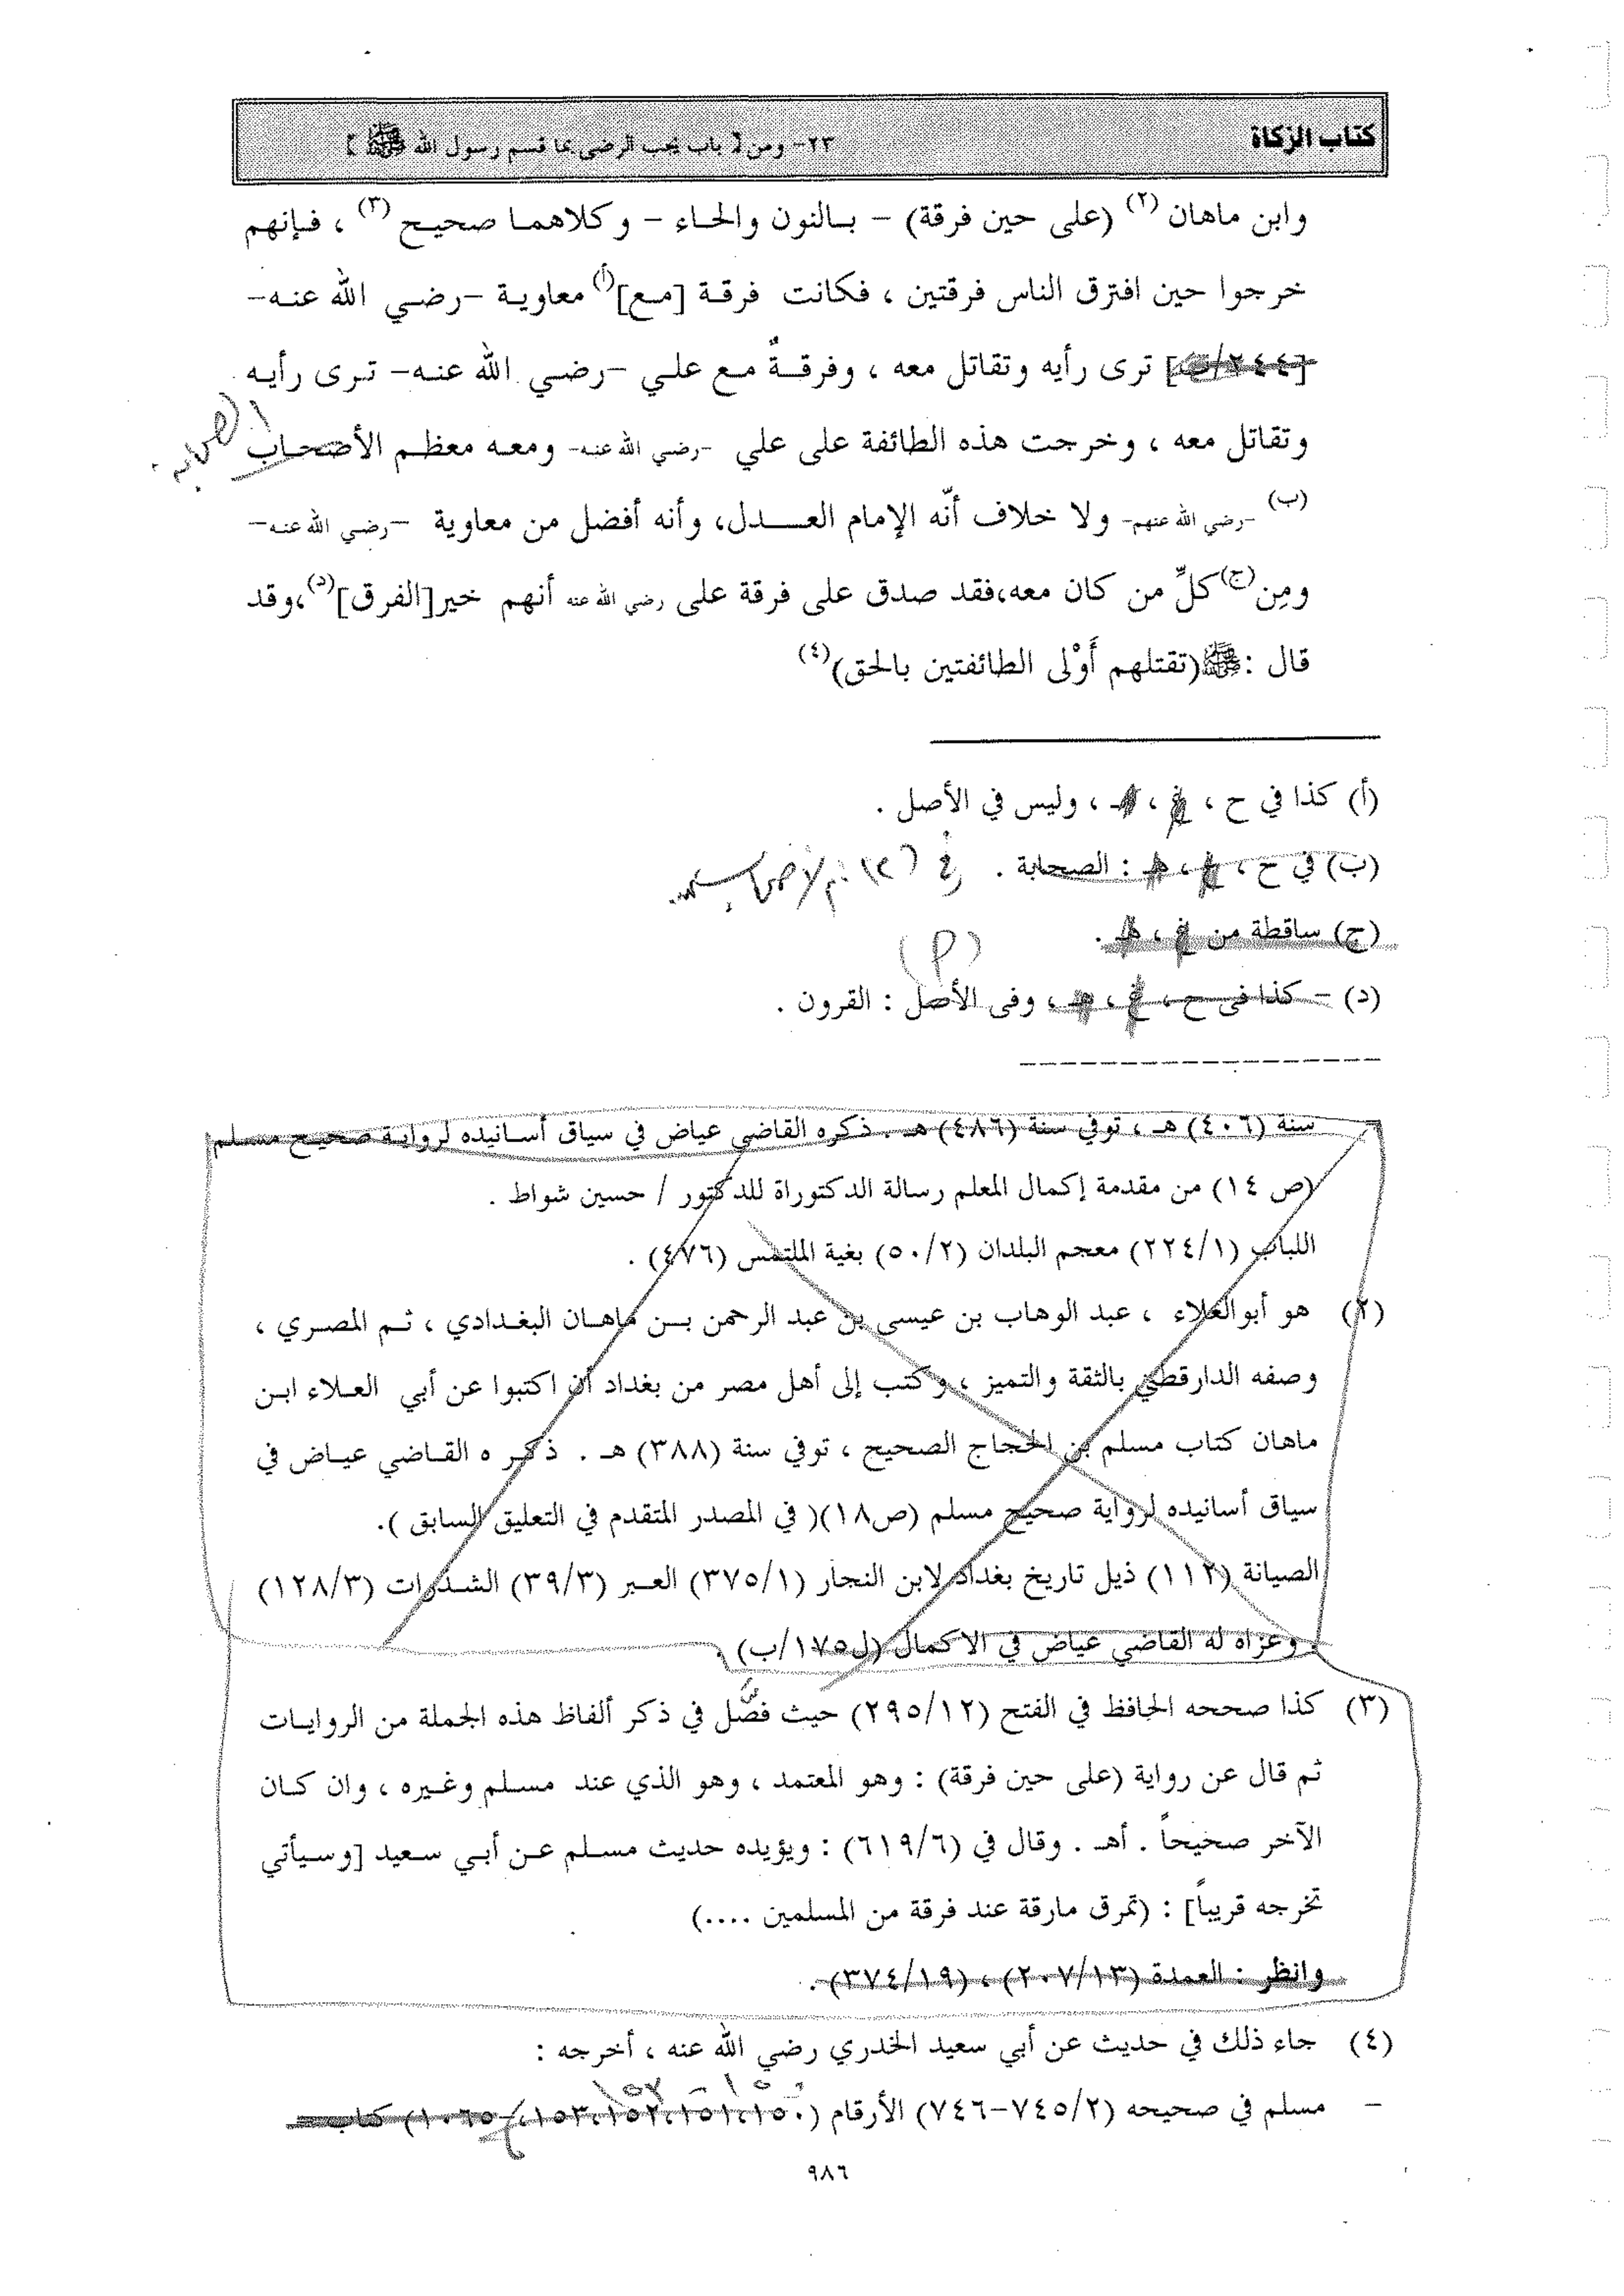 كتاب الزكاة
٢٣- ومن [ باب يجب الرضى بما قسم رسول الله ﷺ ]
وابن ماهان (٢) (على حين فرقة) - بالنون والحاء - وكلاهما صحيح (٣) ، فإنهم
خرجوا حين افترق الناس فرقتين ، فكانت فرقة [مع](أ) معاوية -رضي الله عنه-
[٢٤٤/ب] ترى رأيه وتقاتل معه ، وفرقةٌ مع علي -رضي الله عنه- ترى رأيه
وتقاتل معه ، وخرجت هذه الطائفة على علي -رضي الله عنه- ومعه معظم الأصحاب
الصحابة
(ب) -رضي الله عنهم- ولا خلاف أنّه الإمام العدل، وأنه أفضل من معاوية -رضي الله عنه-
ومِن(ج) كلِّ من كان معه،فقد صدق على فرقة على رضي الله عنه أنهم خير[الفرق](د)،وقد
قال :ﷺ(تقتلهم أَوْلى الطائفتين بالحق)(٤)
(أ) كذا في ح ، غ ، هـ ، وليس في الأصل .
(ب) في ح ، غ ، هـ : الصحابة .
(ج) ساقطة من غ ، هـ .
(م)
(د) - كذا في ح ، غ ، هـ ، وفى الأصل : القرون .
سنة (٤٠٦) هـ ، توفي سنة (٤٨٦) هـ . ذكره القاضي عياض في سياق أسانيده لرواية صحيح مسلم
(ص ١٤) من مقدمة إكمال المعلم رسالة الدكتوراة للدكتور / حسين شواط .
اللباب (٢٢٤/١) معجم البلدان (٥٠/٢) بغية الملتمس (٤٧٦) .
(٢) هو أبوالعلاء ، عبد الوهاب بن عيسى بن عبد الرحمن بن ماهان البغدادي ، ثم المصري ،
وصفه الدارقطني بالثقة والتميز ، وكتب إلى أهل مصر من بغداد أن اكتبوا عن أبي العلاء ابن
ماهان كتاب مسلم بن الحجاج الصحيح ، توفي سنة (٣٨٨) هـ . ذكر ه القاضي عياض في
سياق أسانيده لرواية صحيح مسلم (ص١٨)( في المصدر المتقدم في التعليق السابق ).
الصيانة (١١٢) ذيل تاريخ بغداد لابن النجار (٣٧٥/١) العبر (٣٩/٣) الشذرات (١٢٨/٣)
، وعزاه له القاضي عياض في الاكمال (ل١٧٥/ب) .
(٣) كذا صححه الحافظ في الفتح (٢٩٥/١٢) حيث فصَّل في ذكر ألفاظ هذه الجملة من الروايات
ثم قال عن رواية (على حين فرقة) : وهو المعتمد ، وهو الذي عند مسلم وغيره ، وان كان
الآخر صحيحاً . أهـ . وقال في (٦١٩/٦) : ويؤيده حديث مسلم عن أبي سعيد [وسيأتي
تخرجه قريباً] : (تمرق مارقة عند فرقة من المسلمين ....)
وانظر : العمدة (٢٠٧/١٣) ، (٣٧٤/١٩) .
(٤) جاء ذلك في حديث عن أبي سعيد الخدري رضي الله عنه ، أخرجه :
١٥٠ - ١٥٣
- مسلم في صحيحه (٧٤٥/٢-٧٤٦) الأرقام (١٥٠،١٥١،١٥٢،١٥٣،-١٠٦٥) كتاب
٩٨٦